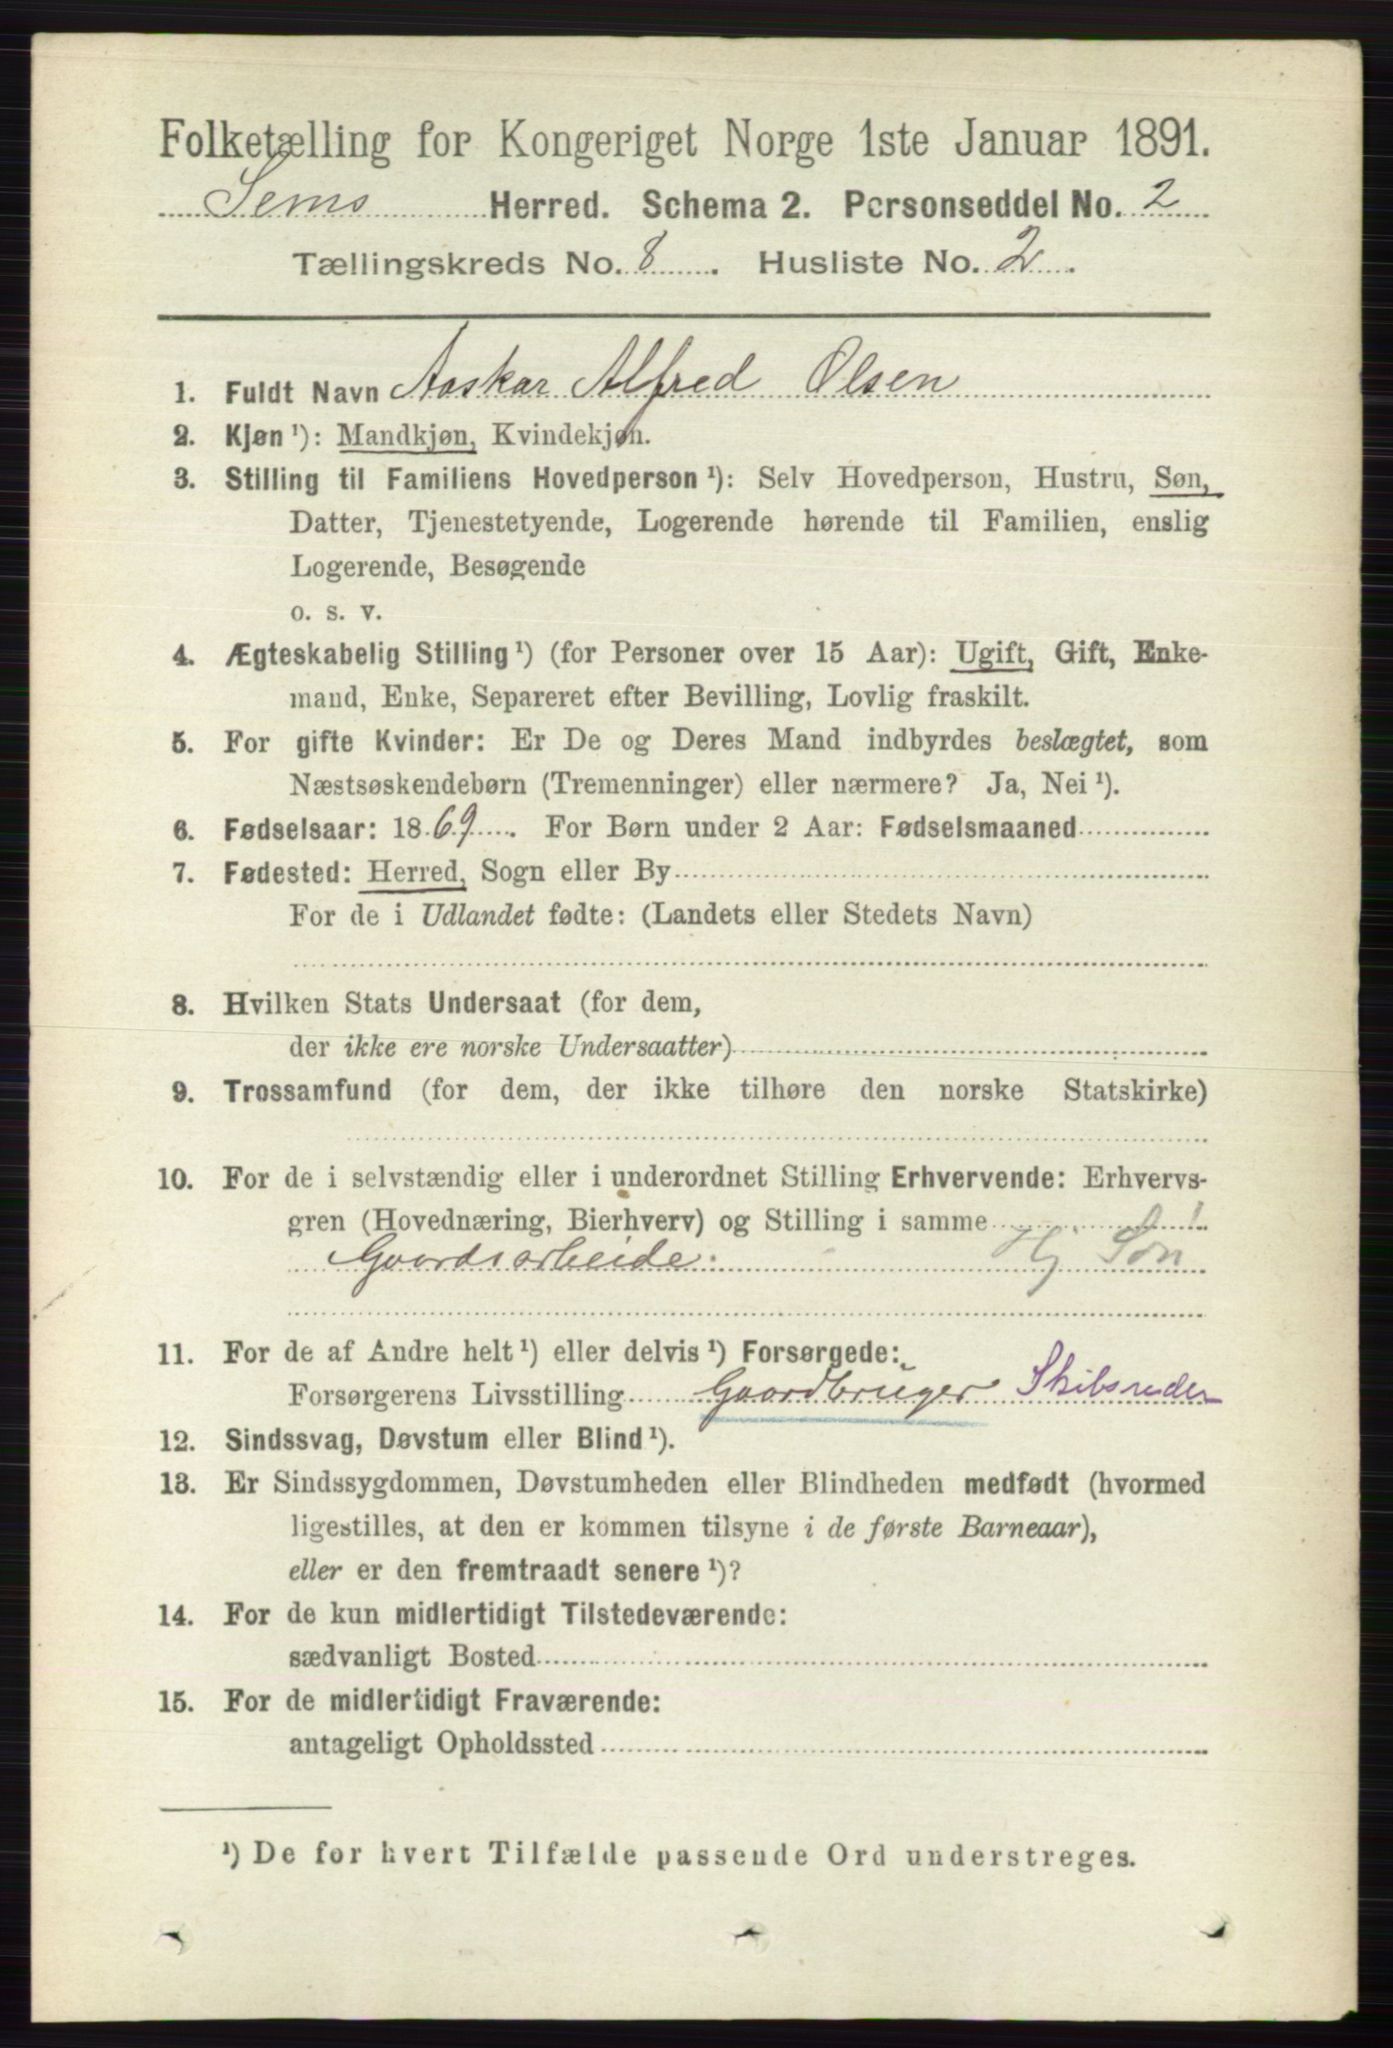 Folketælling for Kongeriget Norge 1ste Januar 1891.
Sems Herred. Schema 2. Personseddel No. 2
Tællingskreds No. 8. Husliste No. 2.
1. Fuldt Navn Aaskar Alfred Olsen
2. Kjøn ¹): Mandkjøn, Kvindekjøn.
3. Stilling til Familiens Hovedperson ¹): Selv Hovedperson, Hustru, Søn,
Datter, Tjenestetyende, Logerende hørende til Familien, enslig
Logerende, Besøgende
o. s. v.
4. Ægteskabelig Stilling ¹) (for Personer over 15 Aar): Ugift, Gift, Enke-
mand, Enke, Separeret efter Bevilling, Lovlig fraskilt.
5. For gifte Kvinder: Er De og Deres Mand indbyrdes beslægtet, som
Næstsøskendebørn (Tremenninger) eller nærmere? Ja, Nei ¹).
6. Fødselsaar: 1869. For Børn under 2 Aar: Fødselsmaaned
7. Fødested: Herred, Sogn eller By
For de i Udlandet fødte: (Landets eller Stedets Navn)
8. Hvilken Stats Undersaat (for dem,
der ikke ere norske Undersaatter)
9. Trossamfund (for dem, der ikke tilhøre den norske Statskirke)
10. For de i selvstændig eller i underordnet Stilling Erhvervende: Erhvervs-
gren (Hovednæring, Bierhverv) og Stilling i samme
Gaardsarbeide. Hj Søn
11. For de af Andre helt ¹) eller delvis ¹) Forsørgede:
Forsørgerens Livsstilling Gaardbruger Skibsreder
12. Sindssvag, Døvstum eller Blind ¹).
13. Er Sindssygdommen, Døvstumheden eller Blindheden medfødt (hvormed
ligestilles, at den er kommen tilsyne i de første Barneaar),
eller er den fremtraadt senere ¹)?
14. For de kun midlertidigt Tilstedeværende:
sædvanligt Bosted
15. For de midlertidigt Fraværende:
antageligt Opholdssted
¹) De for hvert Tilfælde passende Ord understreges.